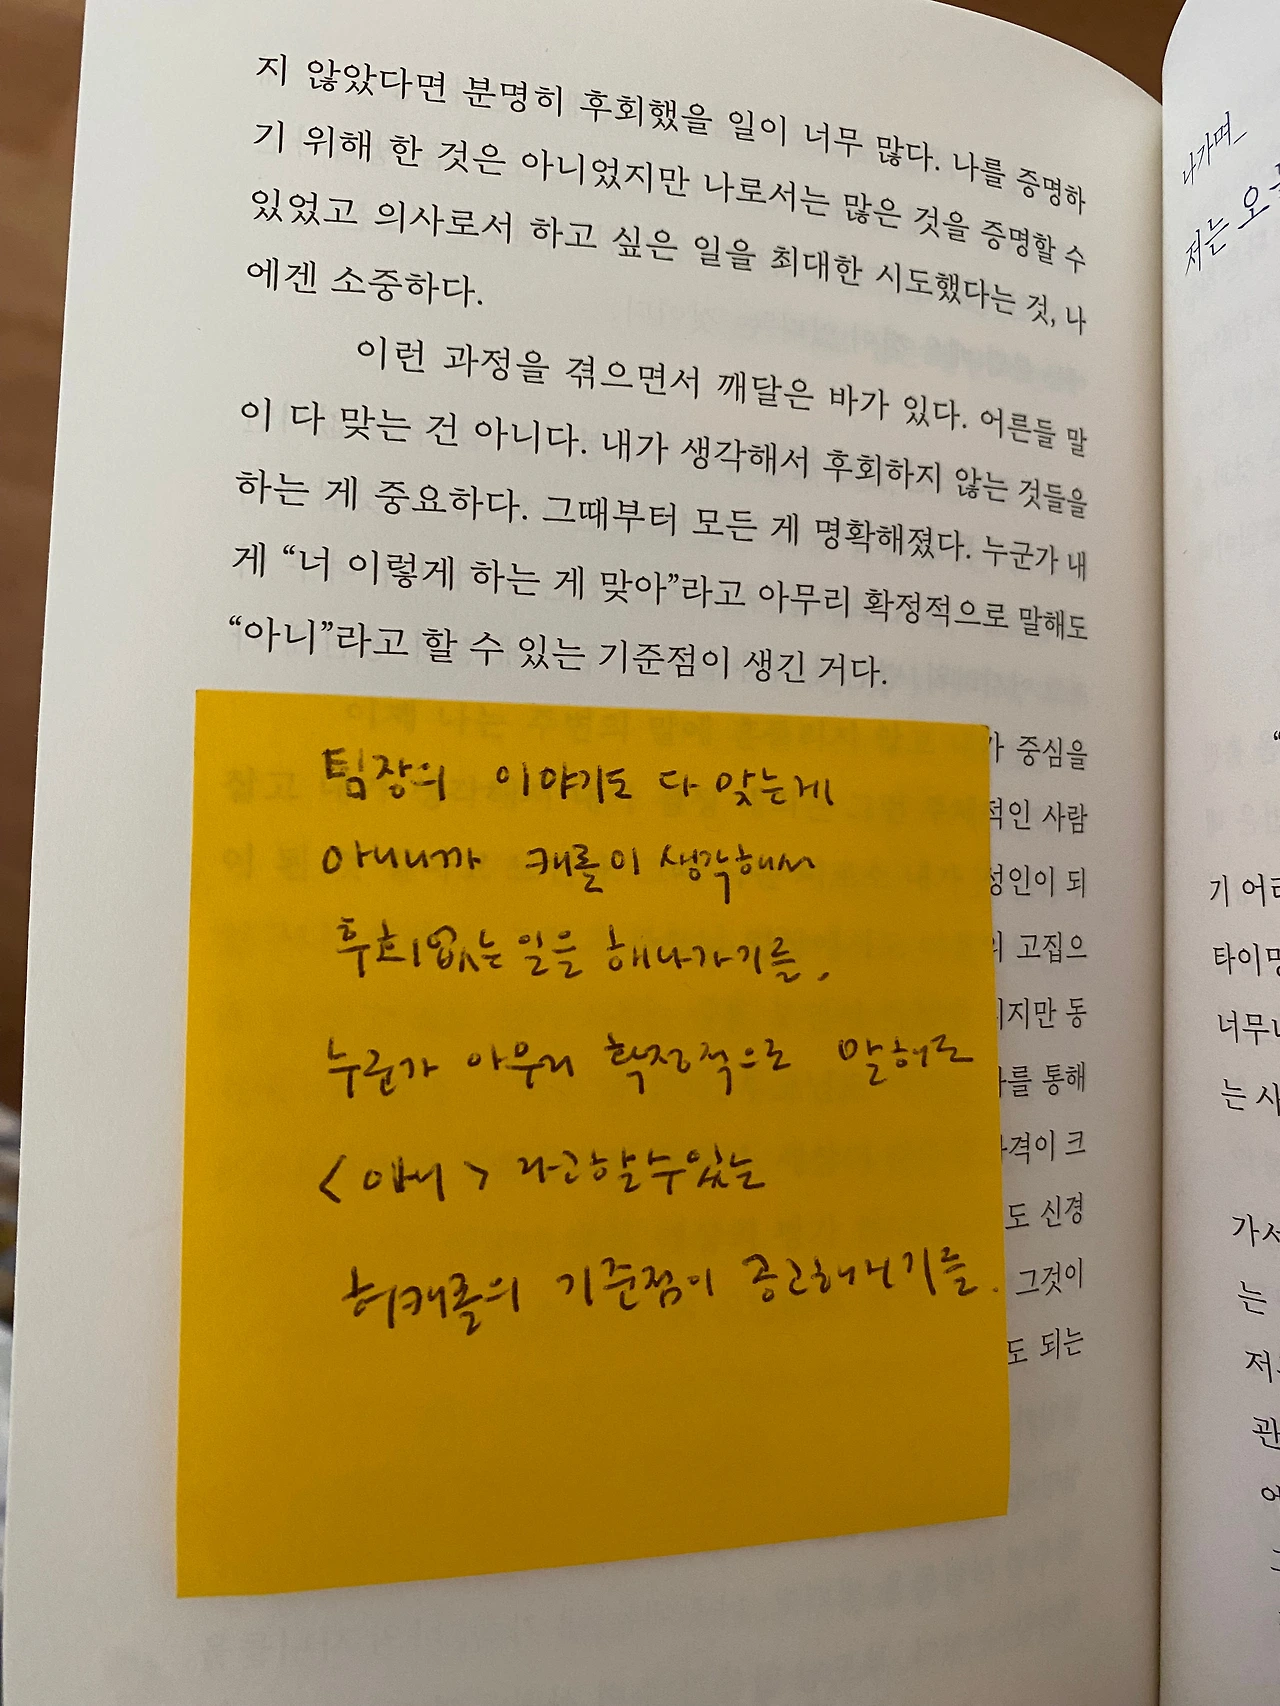 지 않았다면 분명히 후회했을 일이 너무 많다. 나를 증명하
기 위해 한 것은 아니었지만 나로서는 많은 것을 증명할 수
있었고 의사로서 하고 싶은 일을 최대한 시도했다는 것, 나
에겐 소중하다.
이런 과정을 겪으면서 깨달은 바가 있다. 어른들 말
이 다 맞는 건 아니다. 내가 생각해서 후회하지 않는 것들을
하는 게 중요하다. 그때부터 모든 게 명확해졌다. 누군가 내
게 “너 이렇게 하는 게 맞아”라고 아무리 확정적으로 말해도
“아니”라고 할 수 있는 기준점이 생긴 거다.
팀장의 이야기도 다 맞는게
아니니까 캐롤이 생각해서
후회없는 일을 해나가기를.
누군가 아무리 확정적으로 말해도
<아니> 라고 할 수 있는
허캐롤의 기준점이 공고해지기를.
가 중심을
적인 사람
성인이 되
의 고집으
지만 동
를 통해
격이 크
도 신경
그것이
도 되는
나가며_
저는 오
기 어려
타이밍
너무나
는 사
가서
는
저
관